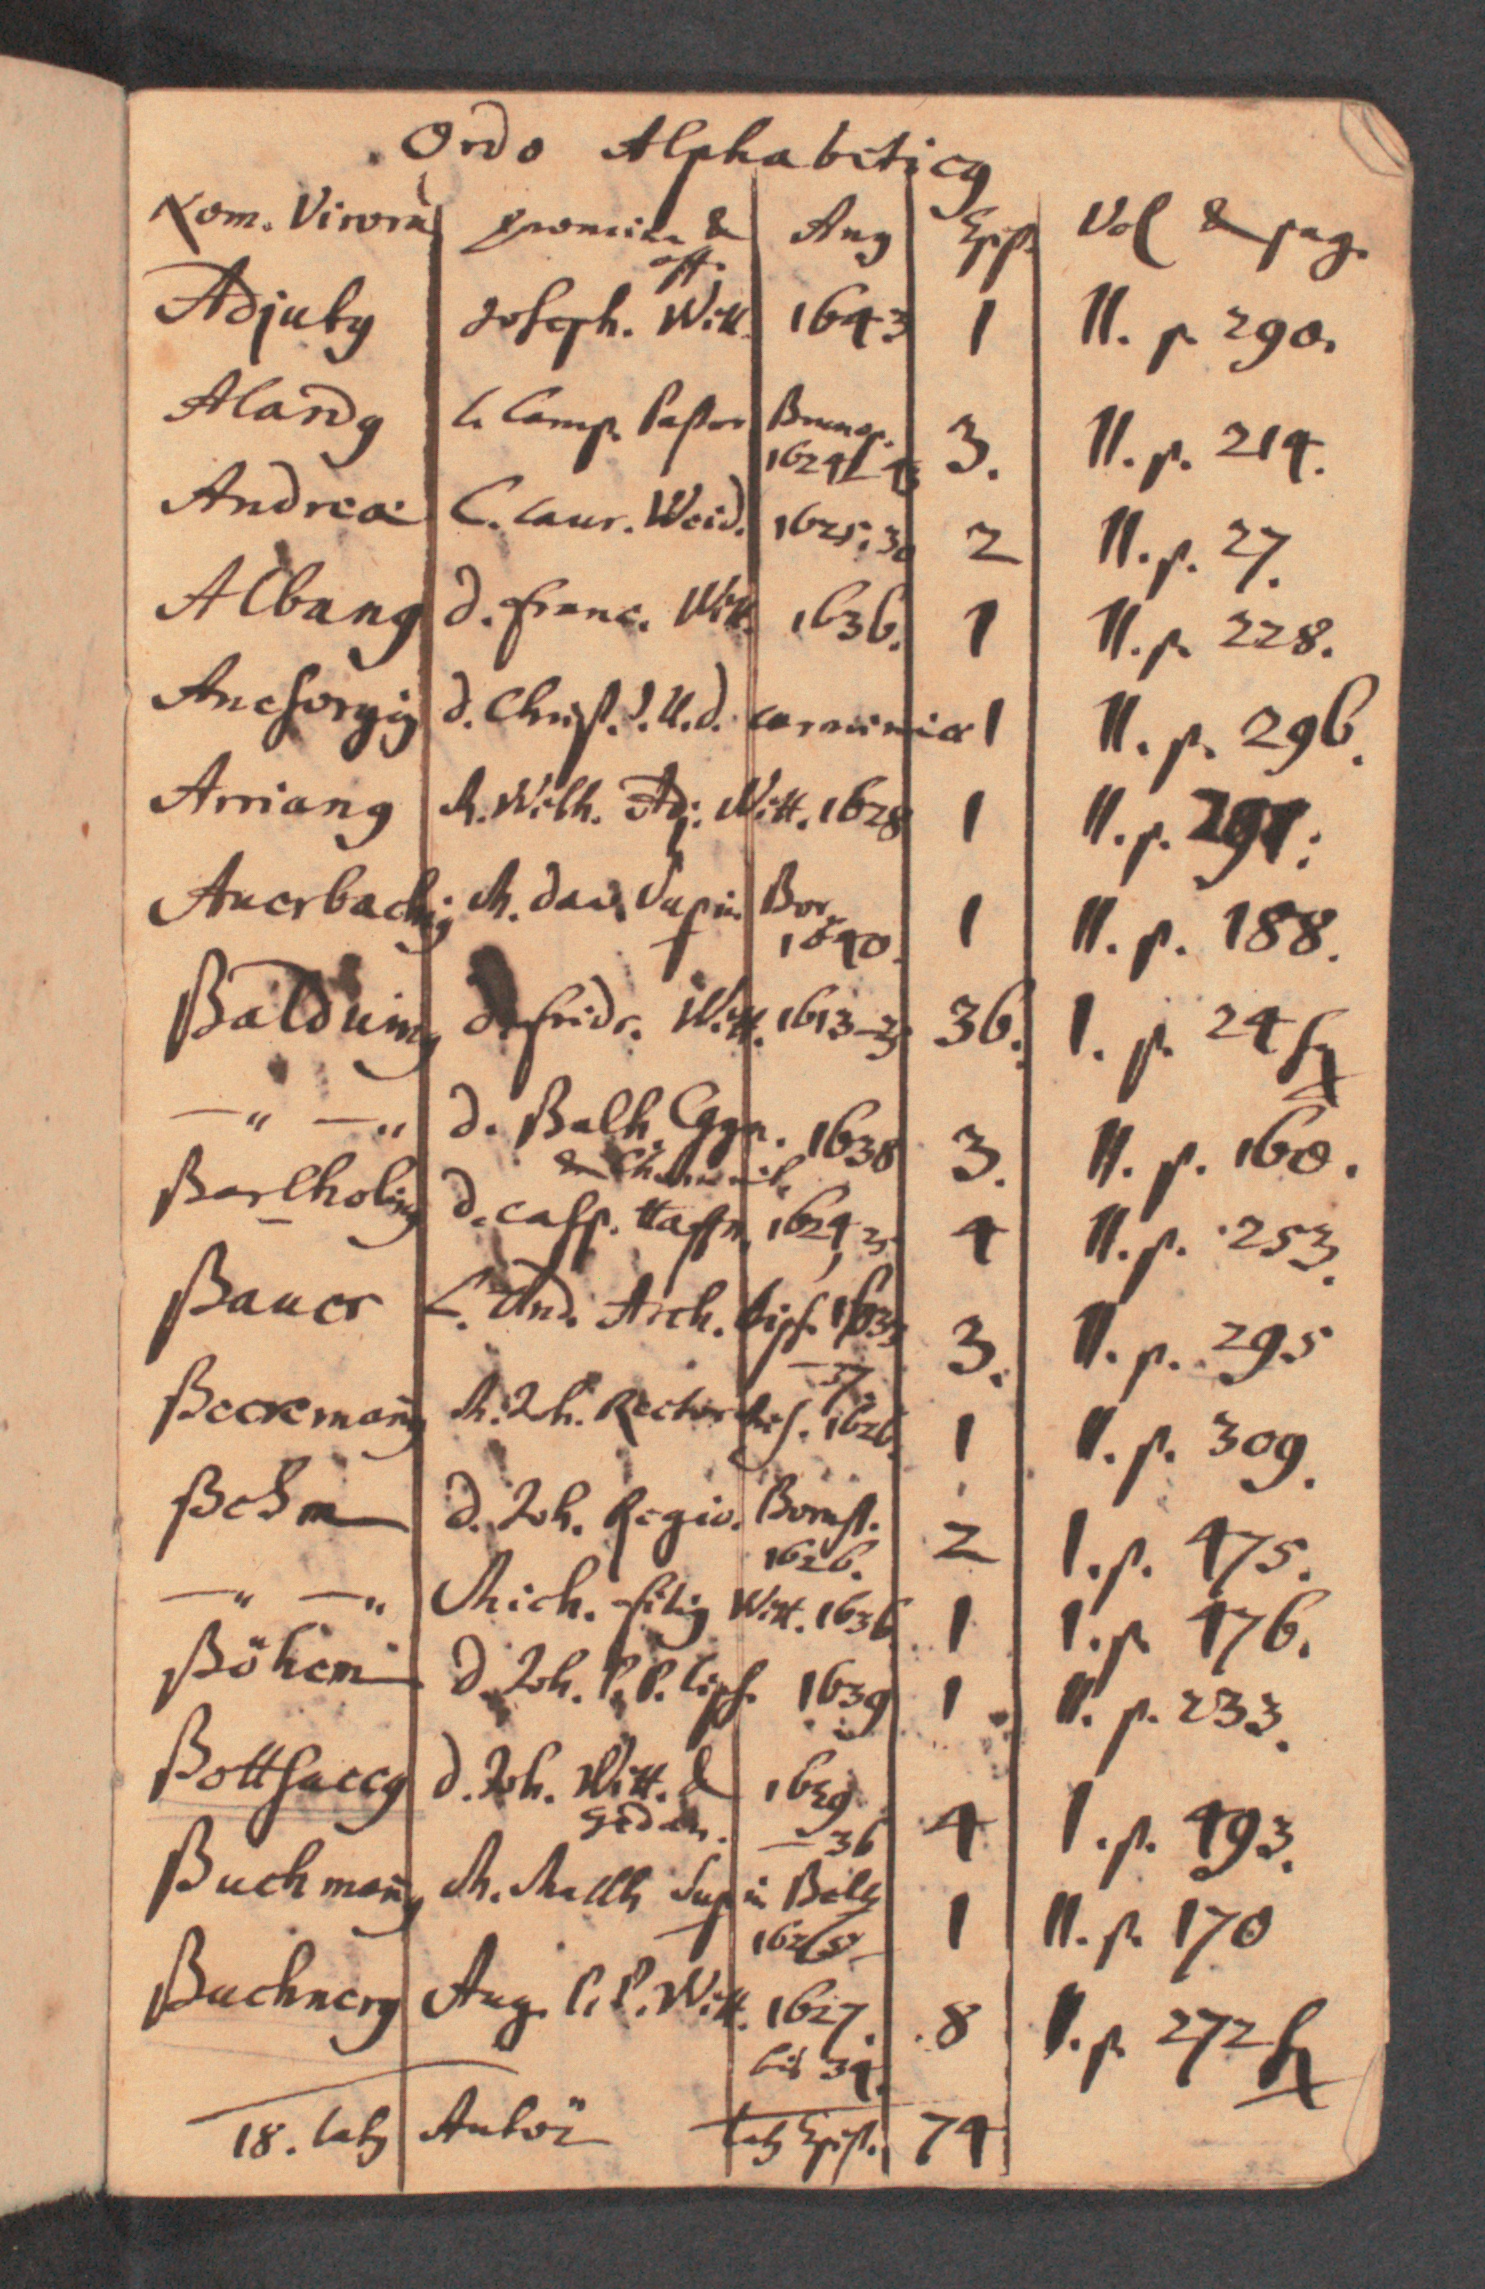 Ordo Alphabeticus
Nom. Virorū | praemia & off. | Anus | Epist. | Vol & pag.
Adjutus | Joseph. Witt. | 1643 | 1 | II. p. 290.
Alandus | Pastor | 3. | II. p. 214.
Andreae | C. Laur. Weid. | 1625. 30 | 2 | II. p. 27.
Albanus | D. Franc. Witt. | 1636. | 1 | II. p. 228.
Ancsorgius | D. Christ. J.U.D. | 1 | II. p. 296.
Arrianus | M. Wilh. Adj. Witt. 1628 | 1 | II. p. 291.
Auerbachius | M. Dav. Sup. in Bor. 1640. | 1 | II. p. 188.
Balduinus | D. Fridr. Witt. 1613–25 | 36. | I. p. 24 sq
—" —" | D. Balth. 1638 | 3. | II. p. 160.
Bartholinus | D. Casp. Haffn. 1624, 25 | 4 | II. p. 253.
Bauer | L. And. Arch. Lips. 1633 –37. | 3. | II. p. 295
Beckmanus | M. Joh. Rector 1626. | 1 | II. p. 309.
Behm | D. Joh. Regio. Boruss. 1626. | 2 | I. p. 475.
—" —" | Mich. filius Witt. 1636 | 1 | I. p. 476.
Böhem | D. Joh. P. P. Lips. 1639 | 1 | II. p. 233.
Bottsaccus | D. Joh. Witt. & Gedan. | 1629 –36 | 4 | I. p. 493.
Buchmanus | M. Matth Sup in Beltz | 1 | II. p. 170
Buchnerus | Aug. P. P. Witt. | 1627. bis 34. | 8 | II. p. 272 sq
18. Latus Autorū | Latus Epist. | 74